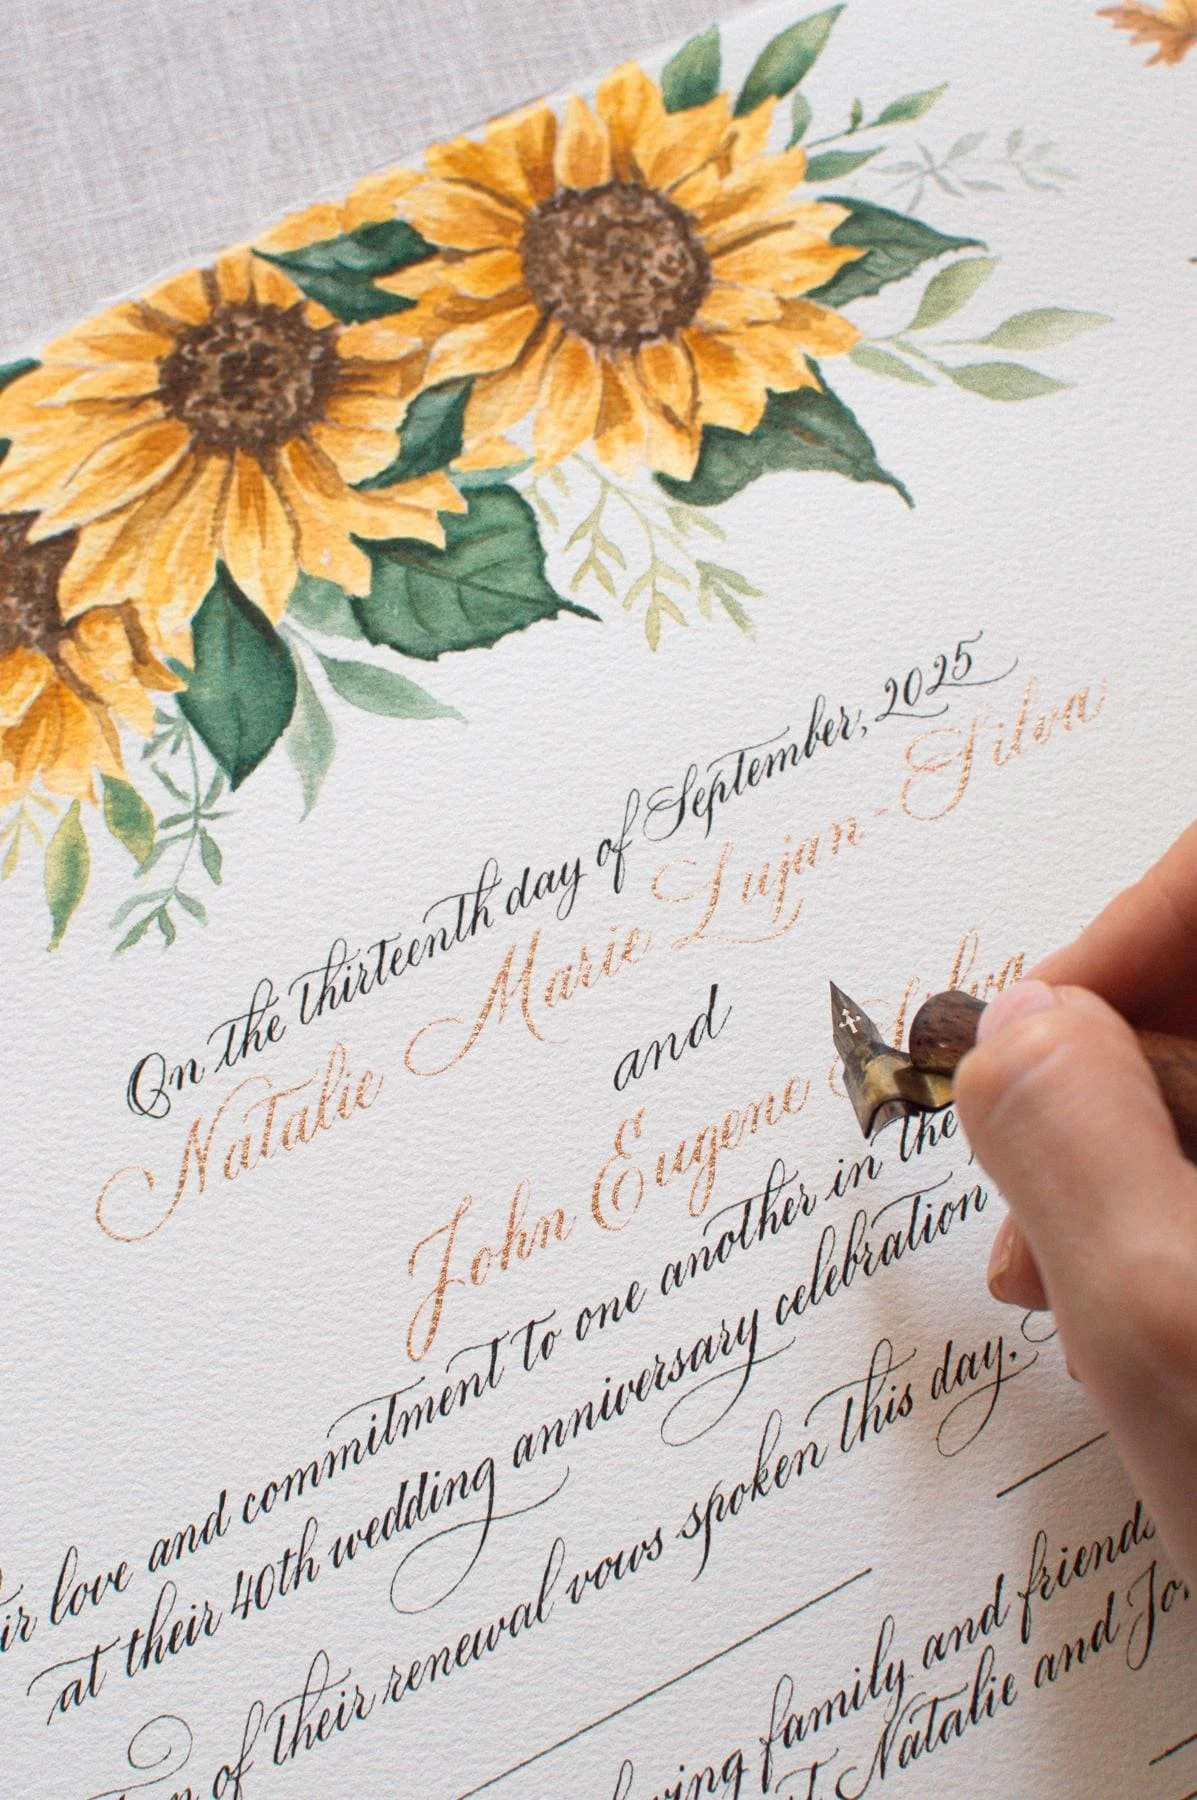 On the thirteenth day of September, 2025
Natalie Marie Lujan-Silva
and
John Eugene Silva
love and commitment to one another in the
at their 40th wedding anniversary celebration
of their renewal vows spoken this day.
family and friends
Natalie and